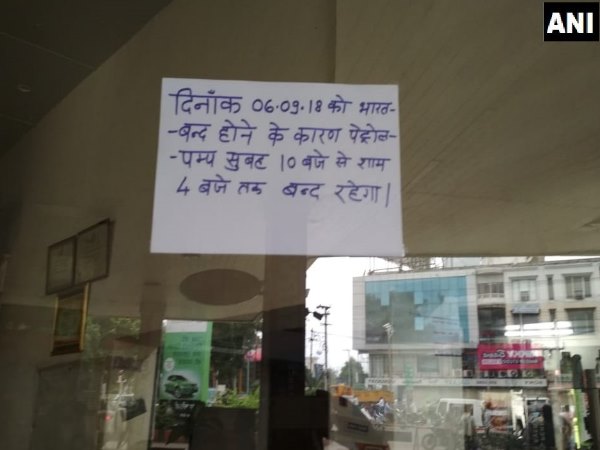 ANI
दिनाँक 06.09.18 को भारत-
-बन्द होने के कारण पेट्रोल-
-पम्प सुबह 10 बजे से शाम
4 बजे तक बन्द रहेगा।